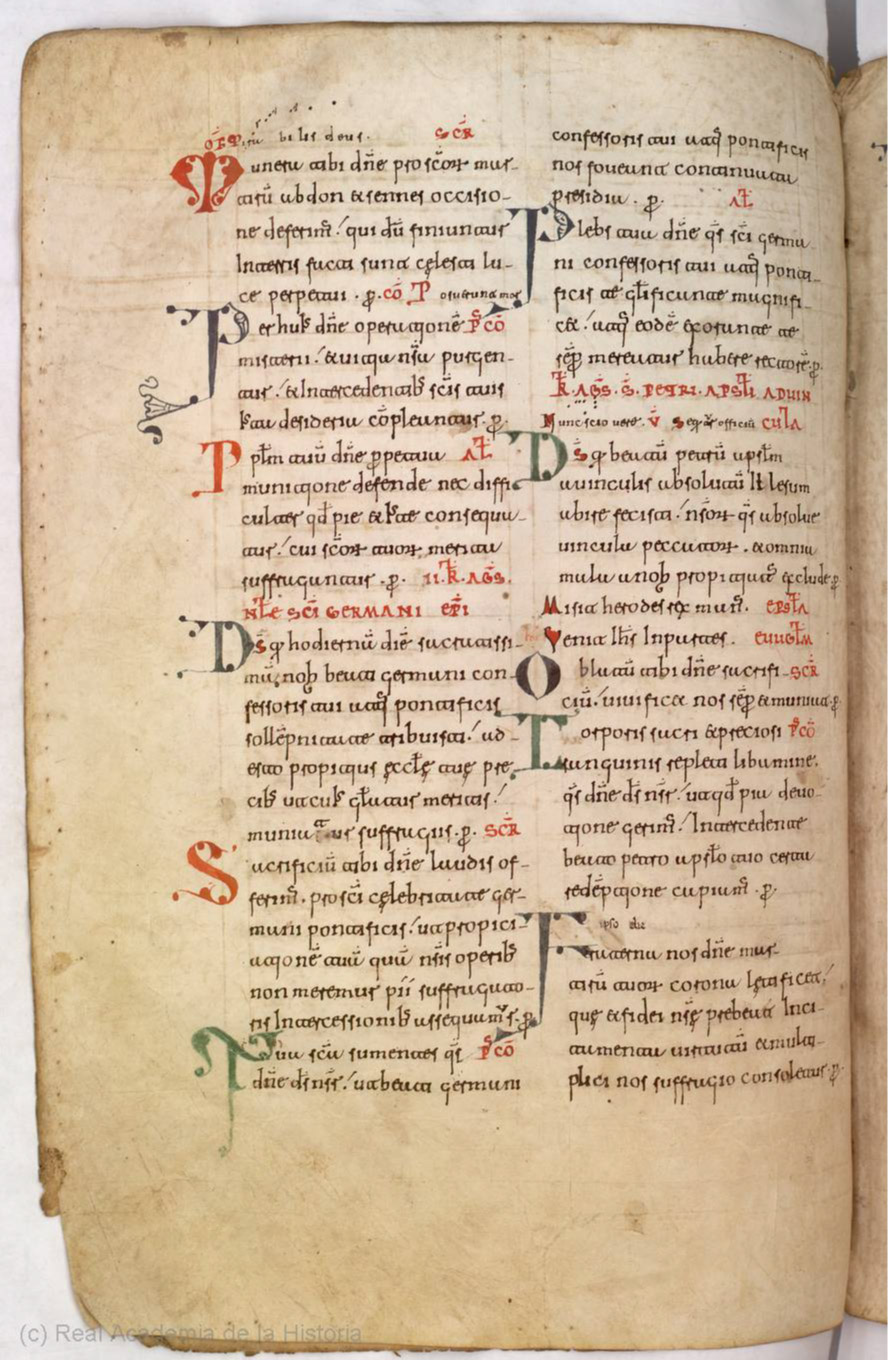 bilis deus. SCR
Munera tibi dñe pro scõr mar-
tirũ abdon & sennes occisio-
ne deferim̃. qui dũ finiuntur
In terris facti sunt cęlesti lu-
ce perpetui. p. CÕ Posuerunt mor
Per huĩ dñe operationẽ P̃CÕ
misterii. & uitia nr̃a purgen-
tur. & Intercedentib sc̃is tuis
iuxta desideria cõpleantur. p.
Pplm tuũ dñe ppetua AL̃
munitione defende nec diffi-
culter qđ pie & iuste consequa-
tur. cui sc̃or tuor merita
suffragantur. p. II. K̃. AGS.
NT̃LE SC̃I GERMANI EP̃I
Ds̃ q hodiernã diẽ sacratissi-
mã nob beati germani con-
fessoris tui atq pontificis
sollẽpnitate tribuisti. ad-
esto propitius ęcclę tuę pre-
cib ut cuius gl̃atur meritis.
muniatur suffragiis. p. SCR
Sacrificiũ tibi dñe laudis of-
ferim̃. pro sc̃i cęlebritate ger-
mani pontificis. ut propici-
ationẽ tuã quã nr̃is operib
non meremur pii suffragato-
ris Intercessionib assequam̃r. p.
Tua sc̃a sumentes qs̃ P̃CÕ
dñe ds̃ nr̃. ut beati germani
confessoris tui atq pontificis
nos foueant continuata
presidia. p. AL̃
Plebs tua dñe qs̃ sc̃i germa-
ni confessoris tui atq ponti-
ficis te gl̃ificante magnifi-
cet. atq eodẽ exorante te
sẽp mereatur habere rectorẽ. p.
K̃. AGS. S. PETRI. APSTL̃I AD UIN
Nunc scio uere. V̄ Seqr̃ officiũ CULA
Ds̃ q beatũ petrũ apsl̃m
a uinculis absolutũ Illesum
abire fecisti. nr̃or qs̃ absolue
uincula peccator. & omnia
mala a nob propitiatus exclude. p.
Misit herodes rex man. EPSTLA
Venit Ihs In partes. EUUGLM
Oblatũ tibi dñe sacrifi- SCR
ciũ. uiuificet nos sẽp & muniat. p.
Corporis sacri & preciosi P̃CÕ
sanguinis repleti libamine.
qs̃ dñe ds̃ nr̃. ut qđ pia deuo-
tione gerim̃. Intercedente
beato petro apsl̃o tuo certa
redẽptione capiam̃. p.
ipso die
Fraterna nos dñe mar-
tirũ tuor corona lętificet.
que & fidei nr̃ę prebeat Inci-
tamenta uirtutũ & multi-
plici nos suffragio consoletur. p.
(c) Real Academia de la Historia